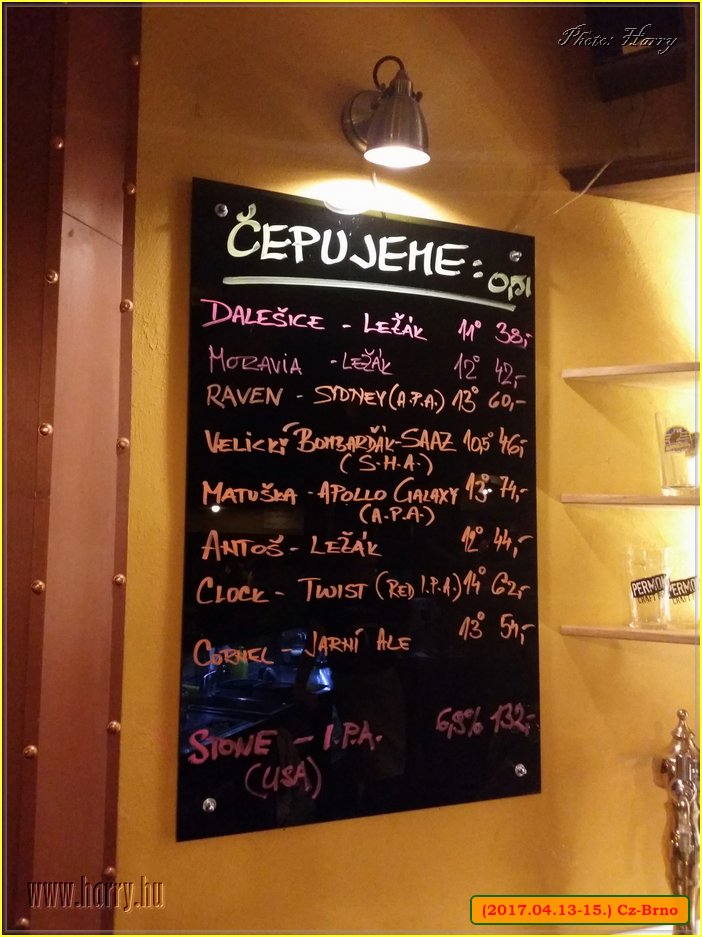 Photo: Harry
ČEPUJEME:
DALEŠICE - LEŽÁK 11° 38,-
MORAVIA - LEŽÁK 12° 42,-
RAVEN - SYDNEY (A.P.A.) 13° 60,-
VELICKÝ BOMBARĎÁK-SAAZ 10,5° 46,-
(S.H.A.)
MATUŠKA - APOLLO GALAXY 13° 74,-
(A.P.A.)
ANTOŠ - LEŽÁK 12° 44,-
CLOCK - TWIST (RED I.P.A.) 14° 62,-
CORNEL - JARNÍ ALE 13° 54,-
STONE - I.P.A. 6,9% 132,-
(USA)
PERMON
CRAFT
PERMON
www.harry.hu
(2017.04.13-15.) Cz-Brno